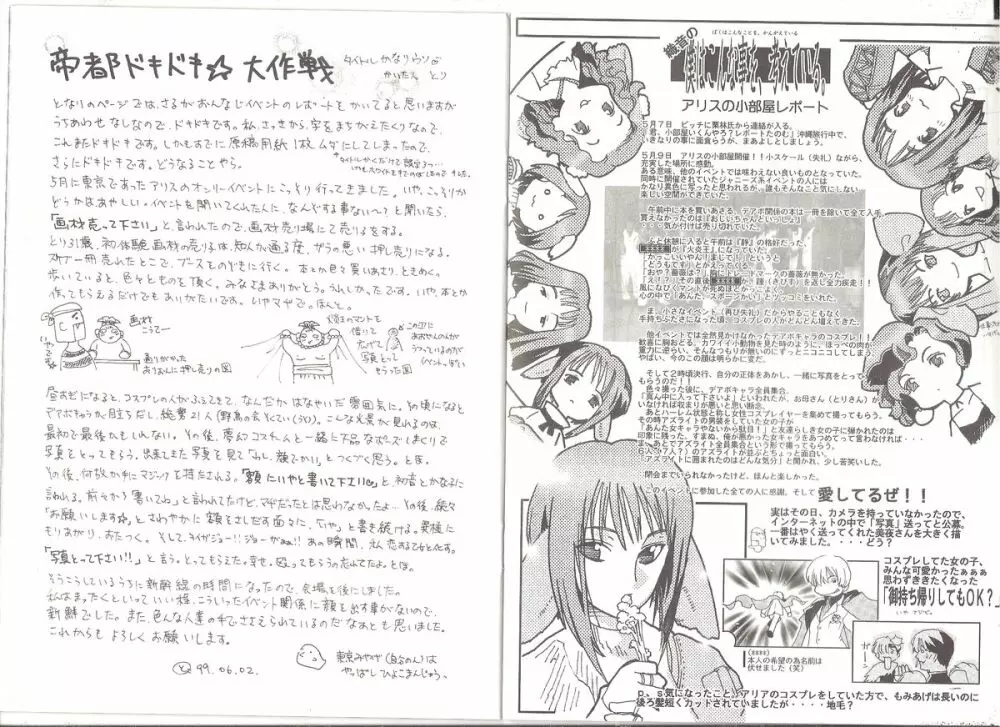 帝都ドキドキ☆大作戦
タイトルかなりウソ
かいたん とり
となりのページでは、さるがおんなじイベントのレポートをかいてると思いますが
うちあわせなしなので、ドキドキです。私、さっきから字をまちがえたくりなので、
これまたドキドキです。しかもすでに原稿用紙1枚ムダにしてしまったので、
さらにドキドキです。どうなることやら。
5月に東京であったアリスのオンリーイベントにこっそり行ってきました。いや、こっそりか
どうかはあやしい。イベントを開いてくれたんに、なんぞする事ない〜?と聞いたら、
「画材売って下さい」と言われたので、画材売り場にて売り子をする。
歩いていると、色々とものを頂く。みなさまありがとう。うれしかったです。いや、本とか
作ってもらえるだけでもありがたいです。いやマヂで。ほんと。
画材
こうてー
王のマントを
借りて
広げて
写真とって
もらった図
昼すぎになると、コスプレの人がふえてきて、なんだかはなやいだ雰囲気に。その頃になると
デアボキャラが目立ちだし、総勢21人(野鳥の会とくていくうり)。こんな光景が見れるのは、
最初で最後かもしれない。その後、夢幻コスチュムと一緒に下品なポーズしまくりで
写真をとってもらう。出来ました写真を見て「わし、顔でかい」とつくづく思う。とほ。
その後、何故か手にマジックを持たされる。「額にいやと書いて下さい」と、初音とかな子に
言われる。前々から「書いてね」と言われてたけど、マヂだったとは思わなかったよ…その後、続々
「お願いします☆」とさわやかに額をさしだす面々に、「いや」と書き続ける。異様に
もりあがり、おたっく。そして、ライガジョー!!ジョーがぁぁ!!あの瞬間、私恋する乙女と化す。
「写真とって下さい!!」と言う。とってもらえた。幸せ。
そうこうしているうちに新幹線の時間になったので、会場を後にしました。
私はまったくといっていい程、こういったイベント関係に顔を出す事がないので、
新鮮でした。また、色んな人達の手でささえられているのだなぁとも思いました。
これからも よろしくお願いします。
99.06.02.
東京みやげ(自分のん)は
やっぱしひよこまんじゅう。
ぼくはこんなことを、かんがえている
僕はこんな事を考えている。
アリスの小部屋レポート
5月7日 ピッチに栗林氏から連絡が入る。
「君、小部屋いくんやろ?レポートたのむ」沖縄旅行中で、
いきなりの事に面食らうが、まあよしとしましょう。
5月9日 アリスの小部屋開催!!小スケール(失礼)ながら、
充実した場所に感動。
ある意味、他のイベントでは味わえない良いものとなっていた。
同時に開催されていたジャニーズ系イベントの人には
かなり異色に写ったと思われるが、誰もそんなこと気にしない
楽しい空間ができていた。
午前中に本を買いあさる、デアボ関係の本は一冊を除いて全て入手。
買えなかったのは「おじいちゃんといっしょ」
・・・気が付けば売り切れていた。
ムムと休憩に入ると午前は『静』の格好だった、
が『火炎王』になっていた。
「かっこいいやん!まじで!」というと
「どうもです」とかえってくる
「おや?薔薇は?」胸にトレードマークの薔薇が無かった。
風になびくマントが死ぬほどかっこよく
心の中で「あんた、スポーンかい」とツッコミをいれた。
ま、小さなイベント(再び失礼)だからやることもなく
手持ちぶたさになった頃、コスプレの人がどんどん増えてきた。
他イベントでは全然見かけなかったデアボキャラのコスプレ!!
歓喜に胸おどる、カワイイ小動物を見た時のように、ほっぺの肉が
重力に逆らい、そんなつもりが無いのにずっとニコニコしてしまう。
やばい、今この顔は明らかに変だ。
そして2時頃決行、自分の正体をあかし、一緒に写真をとって
もらうのだ!!
色々撮った後に、デアボキャラ全員集合。
「真ん中に入って下さいよ」といわれたが、お母さん(とりさん)が
いなければ収まりが悪いと思い断念。
あとハーレム状態と称し女性コスプレイヤーを集めて撮ってもらう。
その時アズライトの男装をしていた女の子が
「あんた女キャラやないから駄目!」と友達らしき女の子に弾かれたのは
印象に残った。すまぬ、俺が悪かった女キャラをあつめてって言わなければ・・・
ま、あとでアズライト全員集合という形で撮ってもらった。
6人(7人?)のアズライトが並ぶとちょっと面白い、
「アズライトに囲まれたのはどんな気分」と聞かれ、少し苦笑いした。
閉会までいられなかったけど、ほんと楽しかった。
このイベントに参加した全ての人に感謝、そして愛してるぜ!!
実はその日、カメラを持っていなかったので、
インターネットの中で「写真」送ってと公募。
一番はやく送ってくれた美夜さんを大きく描
いてみました。・・・どう?
コスプレしてた女の子、
みんな可愛かったぁぁぁ
思わずききたくなった
「御持ち帰りしてもOK?」
いや マジで。
本人の希望の為名前は
伏せました(笑)
p.s気になったこと。アリアのコスプレをしていた方で、もみあげは長いのに
後ろ髪短くカットされていましたが・・・・地毛?